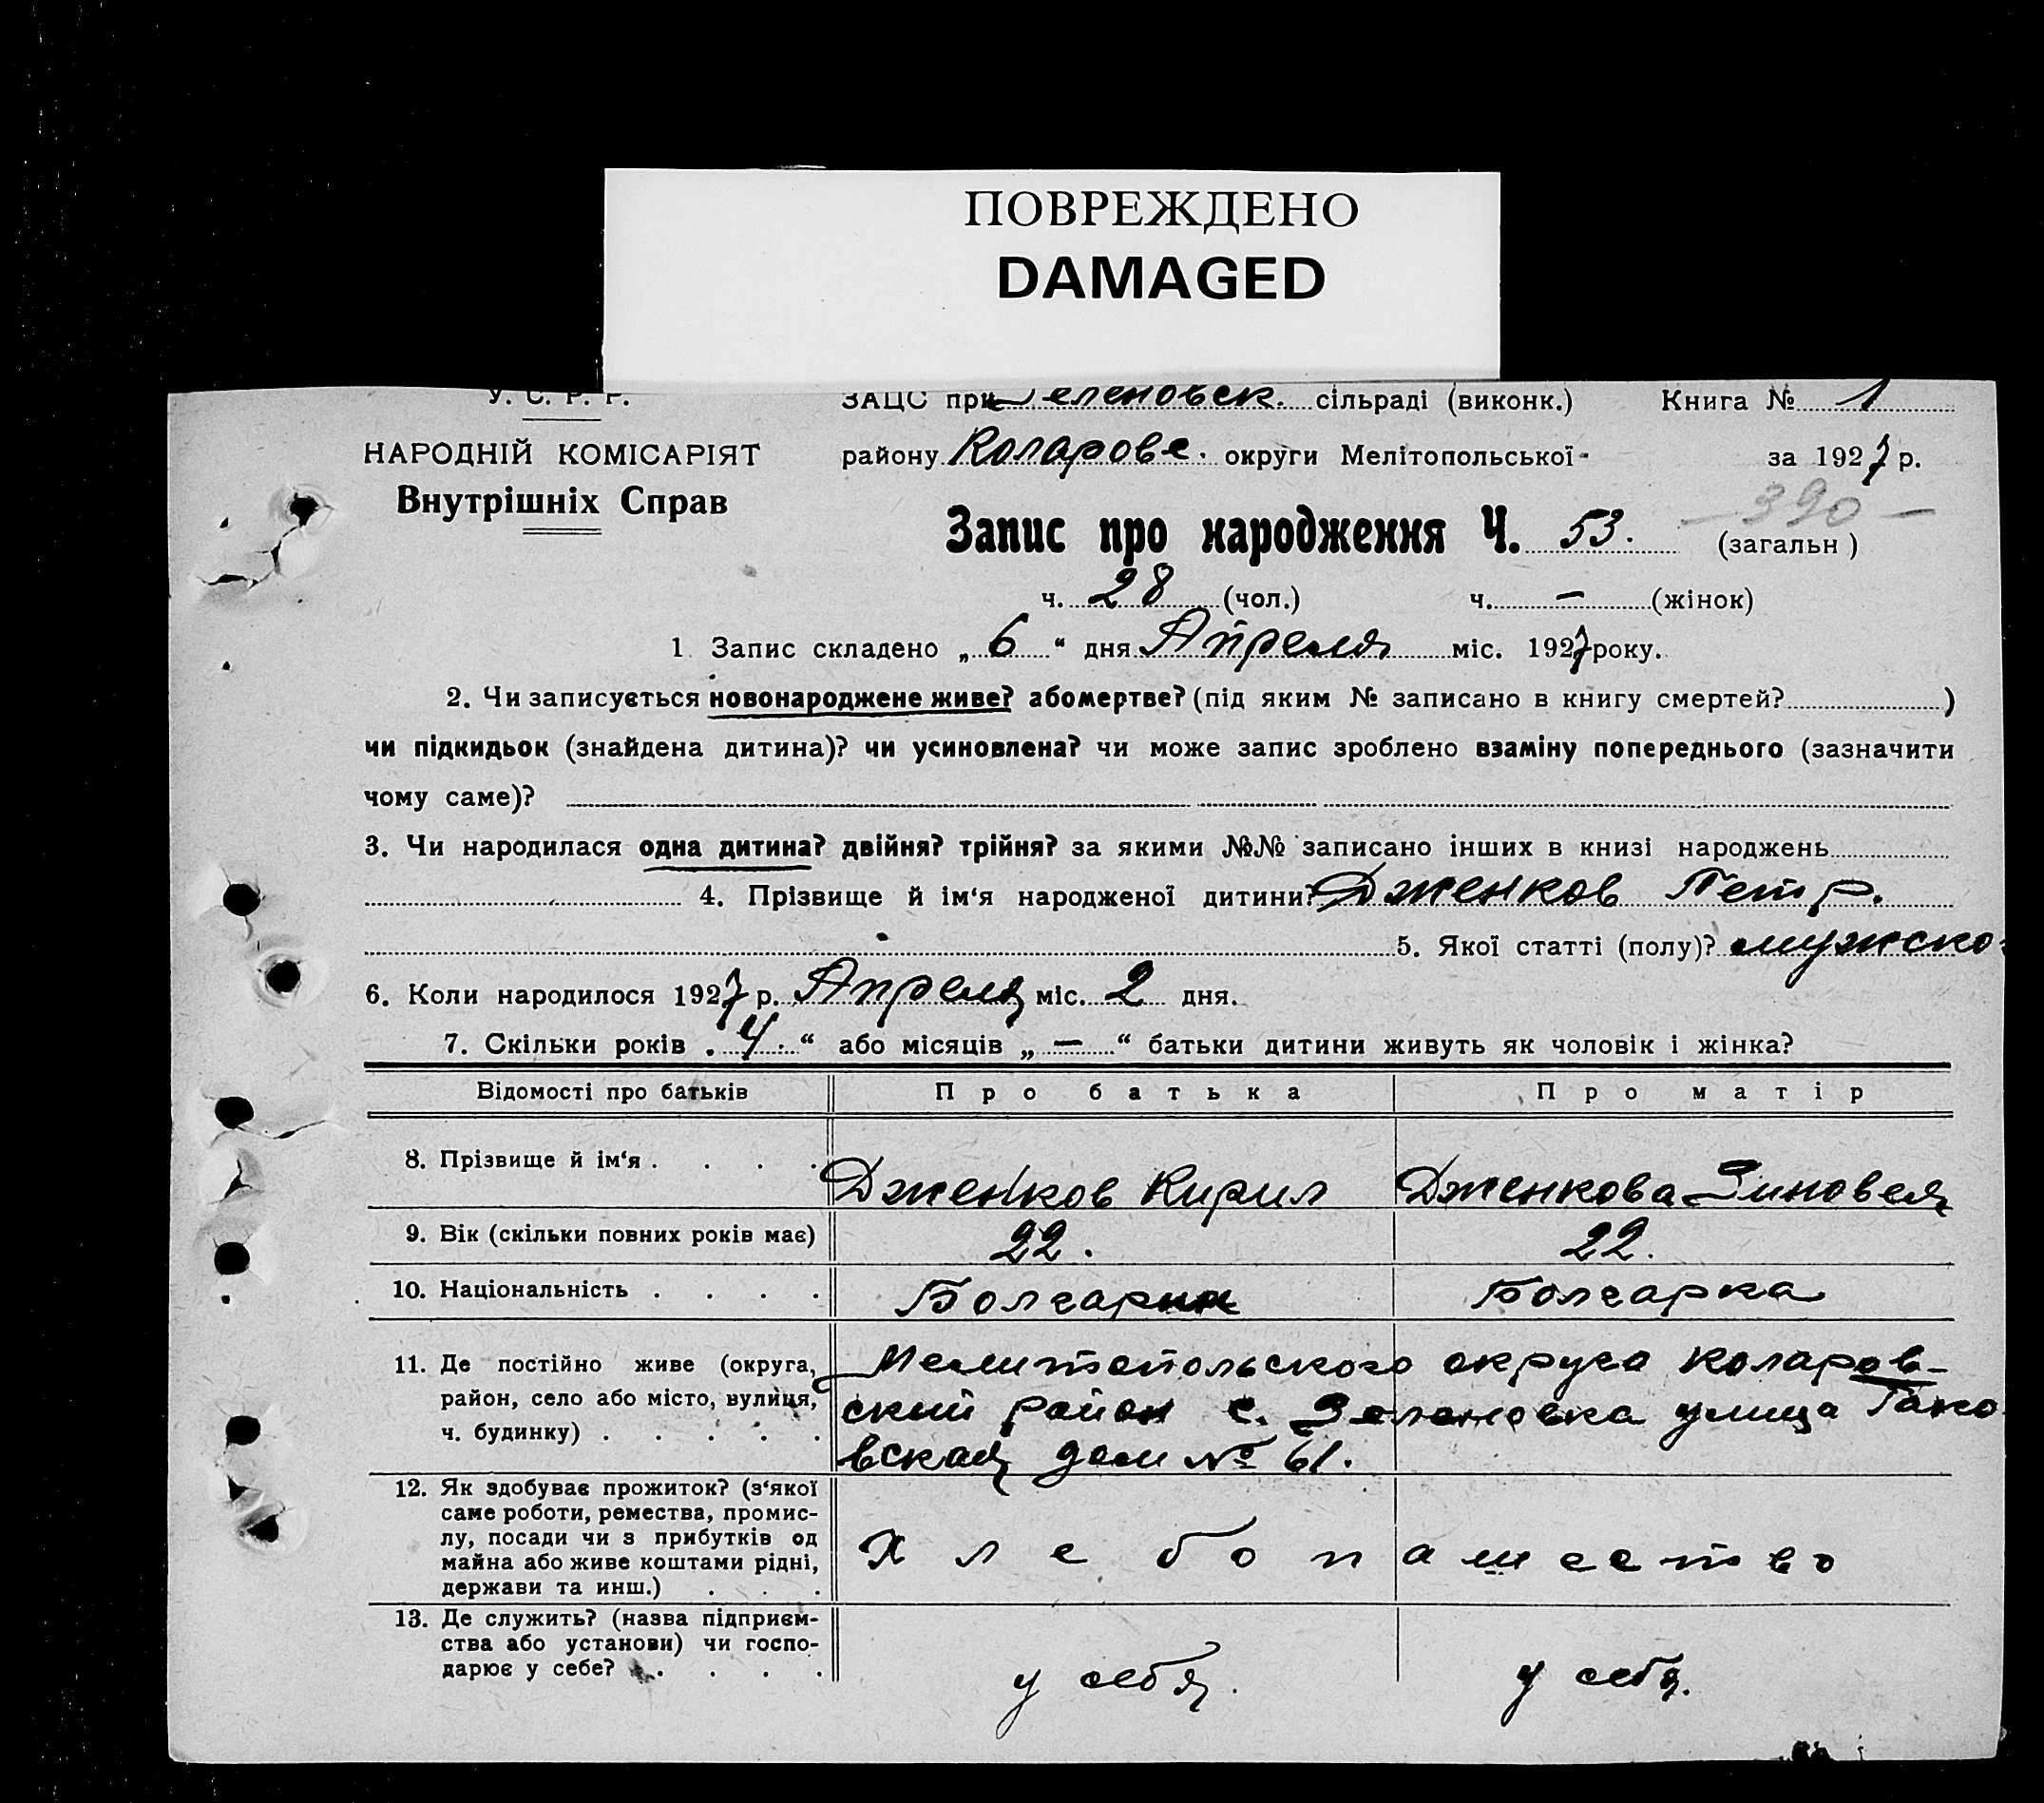 ПОВРЕЖДЕНО
DAMAGED
У. С. Р. Р. ЗАЦС при Зеленовск. сільраді (виконк.) Книга № 1
НАРОДНІЙ КОМІСАРІЯТ району Коларовс. округи Мелітопольської за 1927 р.
Внутрішніх Справ
— 390 —
Запис про народження Ч. 53. (загальн )
ч. 28 (чол.) ч. — (жінок)
1 Запис складено „ 6 “ дня Апреля міс. 1927 року.
2. Чи записується новонароджене живе? або мертве? (під яким № записано в книгу смертей? )
чи підкидьок (знайдена дитина)? чи усиновлена? чи може запис зроблено взаміну попереднього (зазначити
чому саме)?
3. Чи народилася одна дитина? двійня? трійня? за якими №№ записано інших в книзі народжень
4. Прізвище й ім‘я народженої дитини? Дженков Петр.
5. Якої статті (полу)? мужско
6. Коли народилося 1927 р. Апреля міс. 2 дня.
7. Скільки років „ 4 “ або місяців „ — “ батьки дитини живуть як чоловік і жінка?
Відомості про батьків Про батька Про матір
8. Прізвище й ім‘я . . . . Дженков Кирил Дженкова Зиновея
9. Вік (скільки повних років має) 22. 22.
10. Національність . . . . Болгарин Болгарка
11. Де постійно живе (округа, Мелитопольского округа Коларов-
район, село або місто, вулиця, ский район с. Зеленовка улица
ч. будинку) . . . . . вская дом № 61.
12. Як здобуває прожиток? (з‘якої
саме роботи, ремества, промис-
лу, посади чи з прибутків од
майна або живе коштами рідні,
держави та инш.) . . . Хлебопашество
13. Де служить? (назва підприєм-
ства або установи) чи госпо-
дарює у себе? . . . . у себя. у себя.